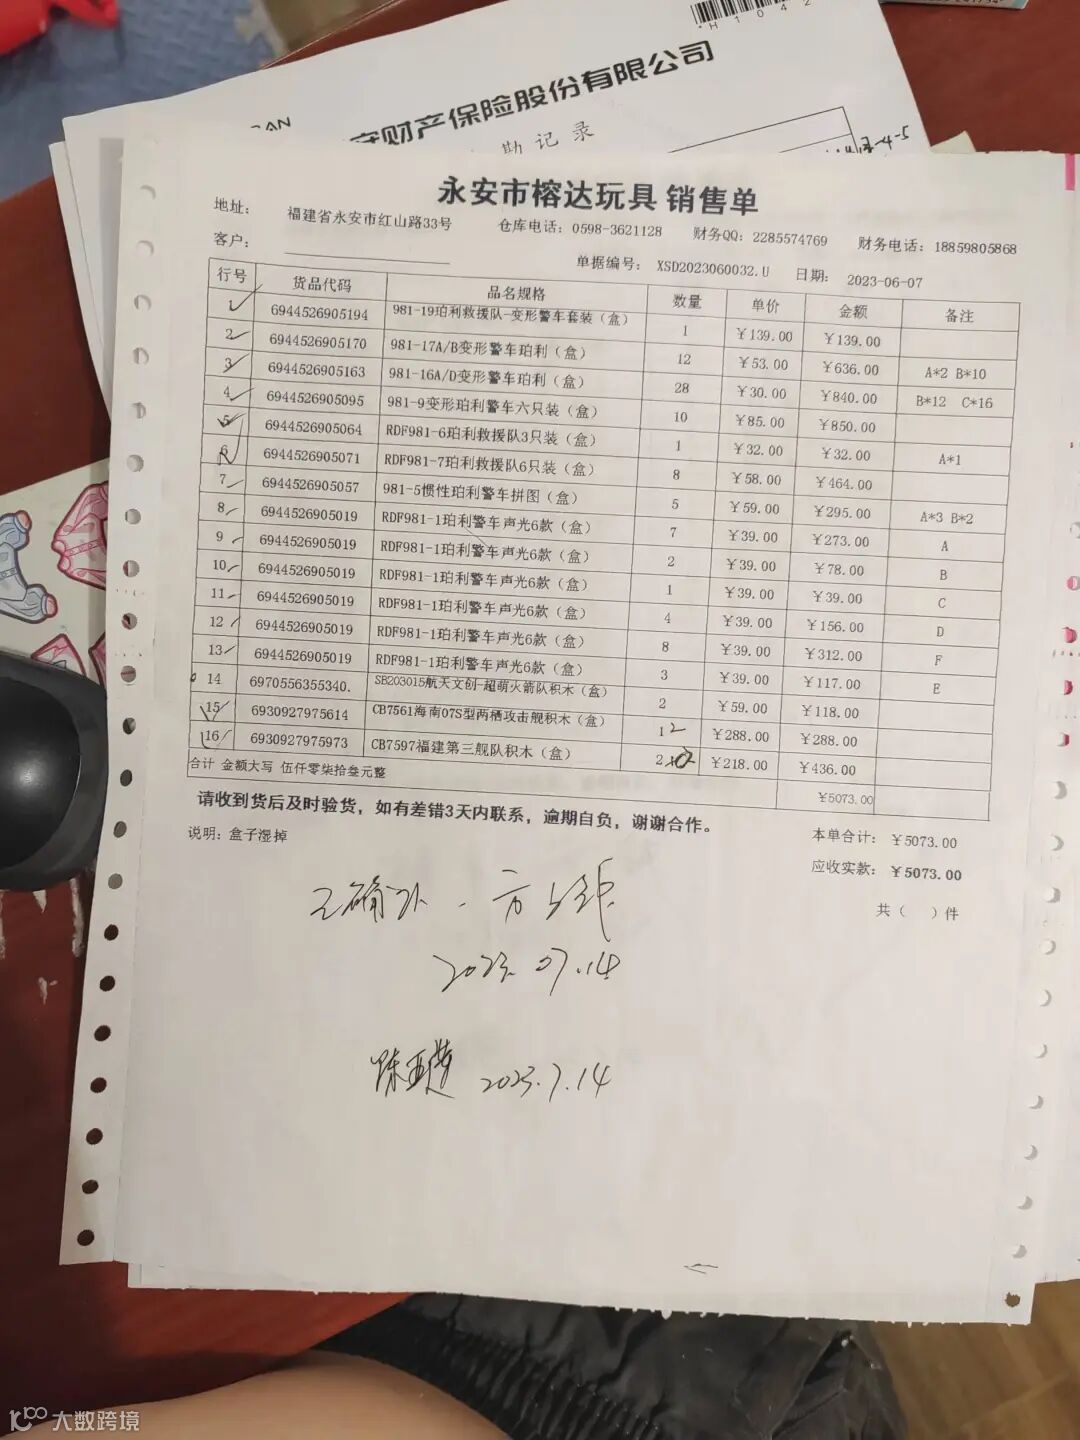 *H1042
财产保险股份有限公司
勘记录
永安市榕达玩具 销售单
地址： 福建省永安市红山路33号 仓库电话：0598-3621128 财务QQ：2285574769 财务电话：18859805868
客户： 单据编号： XSD2023060032.U 日期： 2023-06-07
行号 货品代码 品名规格 数量 单价 金额 备注
6944526905194 981-19珀利救援队-变形警车套装（盒） 1 ￥139.00 ￥139.00
2 6944526905170 981-17A/B变形警车珀利（盒） 12 ￥53.00 ￥636.00 A*2 B*10
3 6944526905163 981-16A/D变形警车珀利（盒） 28 ￥30.00 ￥840.00 B*12 C*16
4 6944526905095 981-9变形珀利警车六只装（盒） 10 ￥85.00 ￥850.00
5 6944526905064 RDF981-6珀利救援队3只装（盒） 1 ￥32.00 ￥32.00 A*1
6 6944526905071 RDF981-7珀利救援队6只装（盒） 8 ￥58.00 ￥464.00
7 6944526905057 981-5惯性珀利警车拼图（盒） 5 ￥59.00 ￥295.00 A*3 B*2
8 6944526905019 RDF981-1珀利警车声光6款（盒） 7 ￥39.00 ￥273.00 A
9 6944526905019 RDF981-1珀利警车声光6款（盒） 2 ￥39.00 ￥78.00 B
10 6944526905019 RDF981-1珀利警车声光6款（盒） 1 ￥39.00 ￥39.00 C
11 6944526905019 RDF981-1珀利警车声光6款（盒） 4 ￥39.00 ￥156.00 D
12 6944526905019 RDF981-1珀利警车声光6款（盒） 8 ￥39.00 ￥312.00 F
13 6944526905019 RDF981-1珀利警车声光6款（盒） 3 ￥39.00 ￥117.00 E
14 6970556355340. SB203015航天文创-超萌火箭队积木（盒） 2 ￥59.00 ￥118.00
15 6930927975614 CB7561海南07S型两栖攻击舰积木（盒） 1 2 ￥288.00 ￥288.00
16 6930927975973 CB7597福建第三舰队积木（盒） 2 ￥218.00 ￥436.00
合计 金额大写 伍仟零柒拾叁元整 ￥5073.00
请收到货后及时验货，如有差错3天内联系，逾期自负，谢谢合作。
说明：盒子湿掉 本单合计： ￥5073.00
应收实款： ￥5073.00
共（ ）件
已确认.方
2023.07.14
陈 2023.7.14
大数跨境